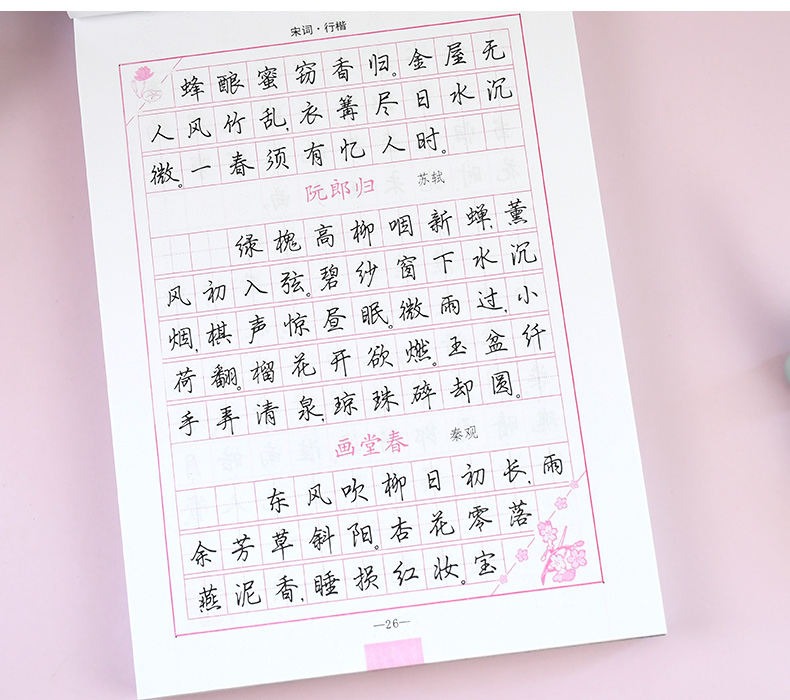 宋词·行楷
蜂酿蜜窃香归。金屋无
人风竹乱,衣篝尽日水沉
微。一春须有忆人时。
阮郎归 苏轼
绿槐高柳咽新蝉,薰
风初入弦。碧纱窗下水沉
烟,棋声惊昼眠。微雨过,小
荷翻。榴花开欲燃。玉盆纤
手弄清泉,琼珠碎却圆。
画堂春 秦观
东风吹柳日初长,雨
余芳草斜阳。杏花零落
燕泥香,睡损红妆。宝
—26—